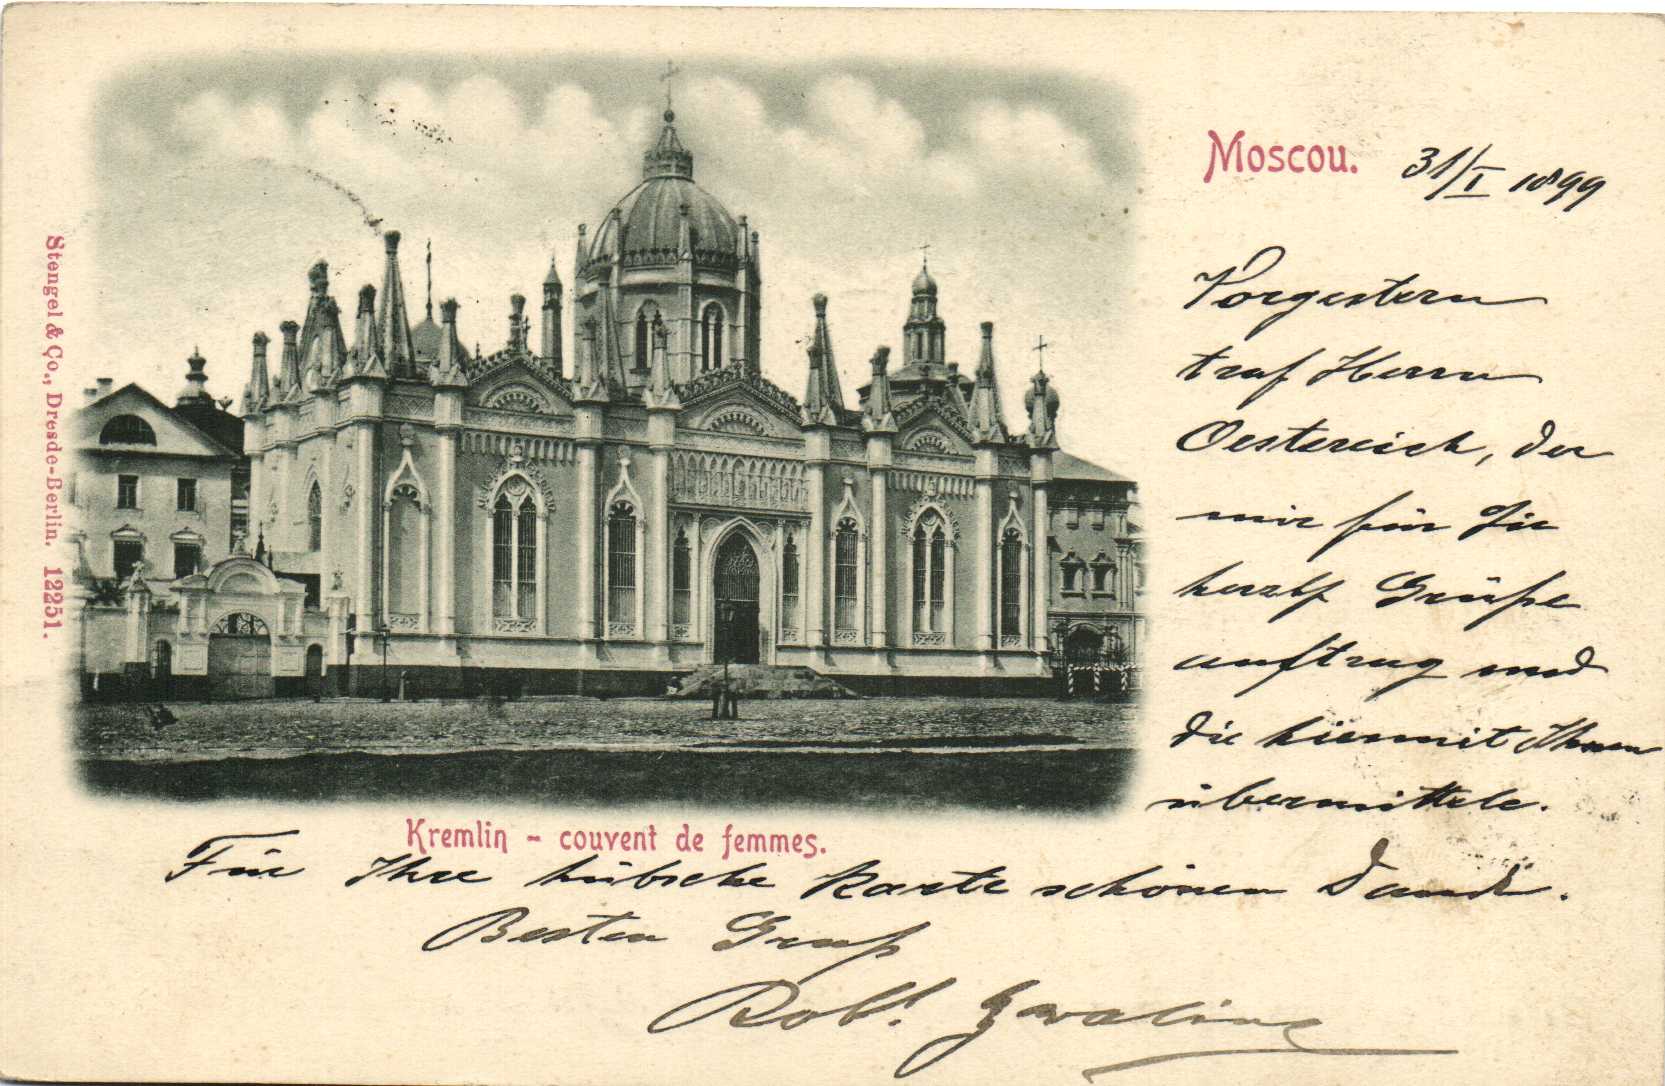 Moscou. 31/I 1899
Vorgestern
traf Herrn
Oestereich, der
mir für Sie
herzl. Grüße
auftrug und
die hiermit Ihnen
übermittele.
Stengel & Co., Dresde-Berlin. 12251.
Kremlin - couvent de femmes.
Für Ihre hübsche Karte schönen Dank.
Besten Gruß
Robt.